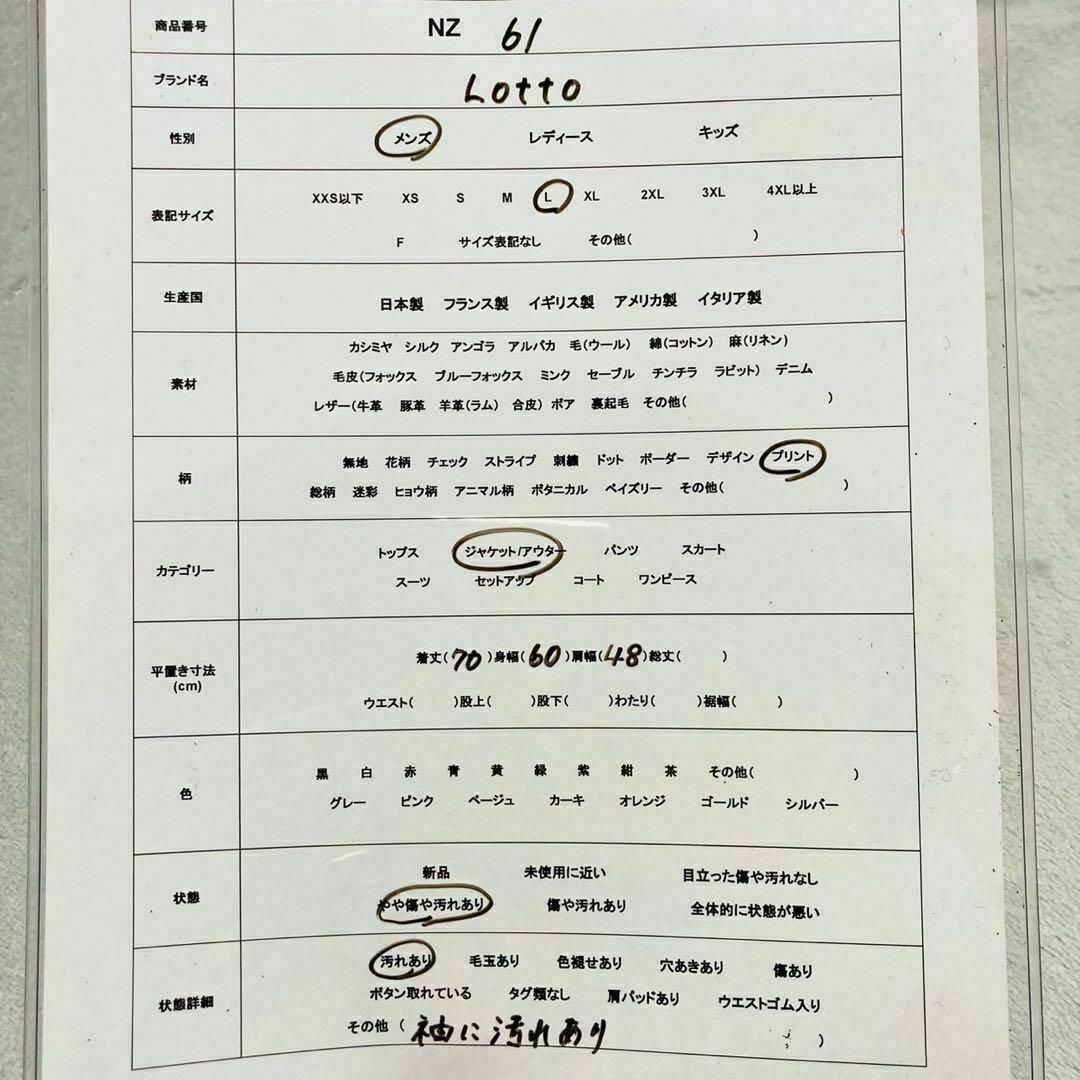 商品番号 NZ 61
ブランド名 Lotto
性別 メンズ レディース キッズ
表記サイズ XXS以下 XS S M L XL 2XL 3XL 4XL以上
F サイズ表記なし その他( )
生産国 日本製 フランス製 イギリス製 アメリカ製 イタリア製
素材 カシミヤ シルク アンゴラ アルパカ 毛(ウール) 綿(コットン) 麻(リネン)
毛皮(フォックス ブルーフォックス ミンク セーブル チンチラ ラビット) デニム
レザー(牛革 豚革 羊革(ラム) 合皮) ボア 裏起毛 その他( )
柄 無地 花柄 チェック ストライプ 刺繍 ドット ボーダー デザイン プリント
総柄 迷彩 ヒョウ柄 アニマル柄 ボタニカル ペイズリー その他( )
カテゴリー トップス ジャケット/アウター パンツ スカート
スーツ セットアップ コート ワンピース
平置き寸法 (cm) 着丈(70)身幅(60)肩幅(48)総丈( )
ウエスト( )股上( )股下( )わたり( )裾幅( )
色 黒 白 赤 青 黄 緑 紫 紺 茶 その他( )
グレー ピンク ベージュ カーキ オレンジ ゴールド シルバー
状態 新品 未使用に近い 目立った傷や汚れなし
やや傷や汚れあり 傷や汚れあり 全体的に状態が悪い
状態詳細 汚れあり 毛玉あり 色褪せあり 穴あきあり 傷あり
ボタン取れている タグ類なし 肩パッドあり ウエストゴム入り
その他 ( 袖に汚れあり )